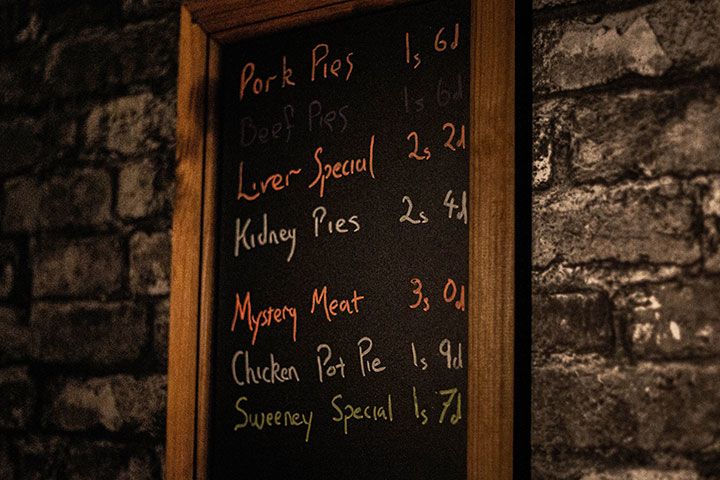 Pork Pies 1s 6d
Beef Pies 1s 6d
Liver Special 2s 2d
Kidney Pies 2s 4d
Mystery Meat 3s 0d
Chicken Pot Pie 1s 9d
Sweeney Special 1s 7d